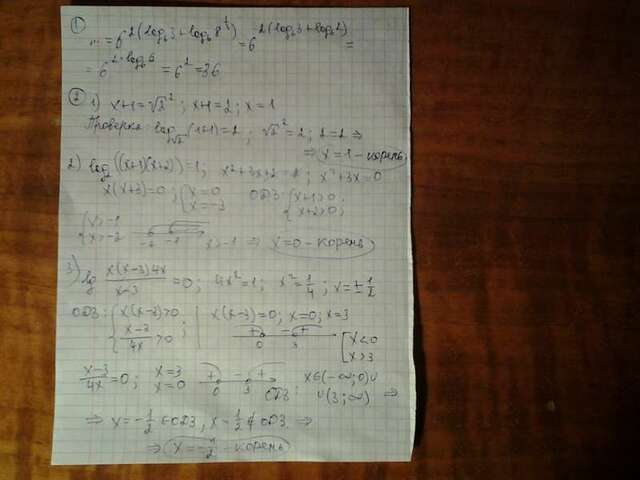 ① ... = 6^2(log₆3+log₆8^⅓) = 6^2(log₆3+log₆2) =
= 6^2·log₆6 = 6² = 36
② 1) x+1=√2²; x+1=2; x=1
Проверка: log√2(1+1)=2; √2²=2; 2=2 ⇒
⇒ x=1 - корень
2) log((x+1)(x+2))=1; x²+3x+2=2; x²+3x=0
x(x+3)=0; { x=0 x=-3 ОДЗ: { x+1>0; x+2>0;
{ x>-1 x>-2 -2 -1 x>-1 ⇒ x=0 - корень
3) lg x(x-3)4x/x-3 =0; 4x²=1; x²=1/4; x=±1/2
ОДЗ: { x(x-3)>0 x-3/4x>0 ; x(x-3)=0; x=0; x=3
+ - + 0 3 [ x<0 x>3
x-3/4x=0; x=3 x=0 + - + 0 3 ОДЗ: x∈(-∞;0)∪
∪(3;∞) ⇒
⇒ x=-1/2 ∈ ОДЗ, x=1/2 ∉ ОДЗ ⇒
⇒ x=-1/2 - корень